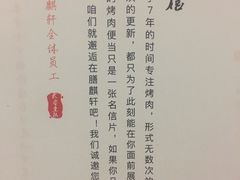 7年的时间专注烤肉，形式无数次
的更新，都只为了此刻能在你面前展
的烤肉便当只是一张名信片，如果你
咱们就邂逅在膳麒轩吧！我们诚邀您
麒轩全体员工